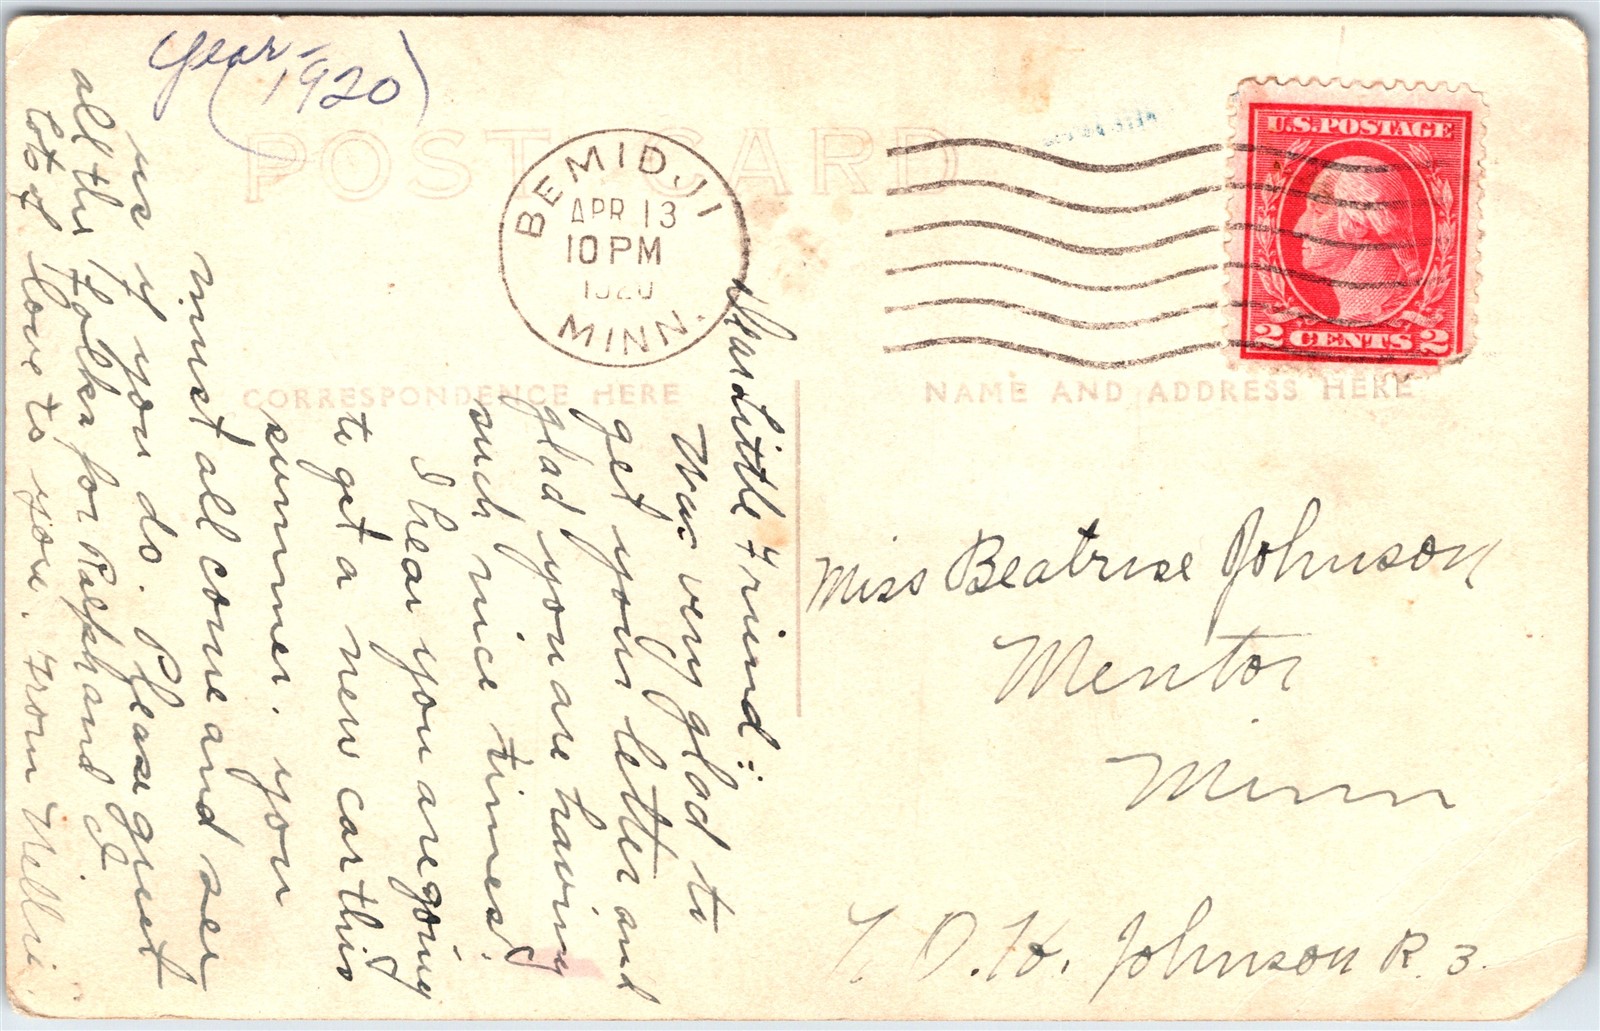 year-
(1920)
POST CARD
BEMIDJI
APR 13
10 PM
1920
MINN.
U.S. POSTAGE
2 CENTS 2
CORRESPONDENCE HERE
NAME AND ADDRESS HERE
Dear Little Friend:
Was very glad to
get your letter and
glad you are having
such nice times.
I hear you are going
to get a new car this
summer. you
must all come and see
us if you do. Please greet
all the folks for Ralph and I
Lots of love to you. From Nellie.
Miss Beatrise Johnson
Mentor
Minn
O. H. Johnson R. 3.